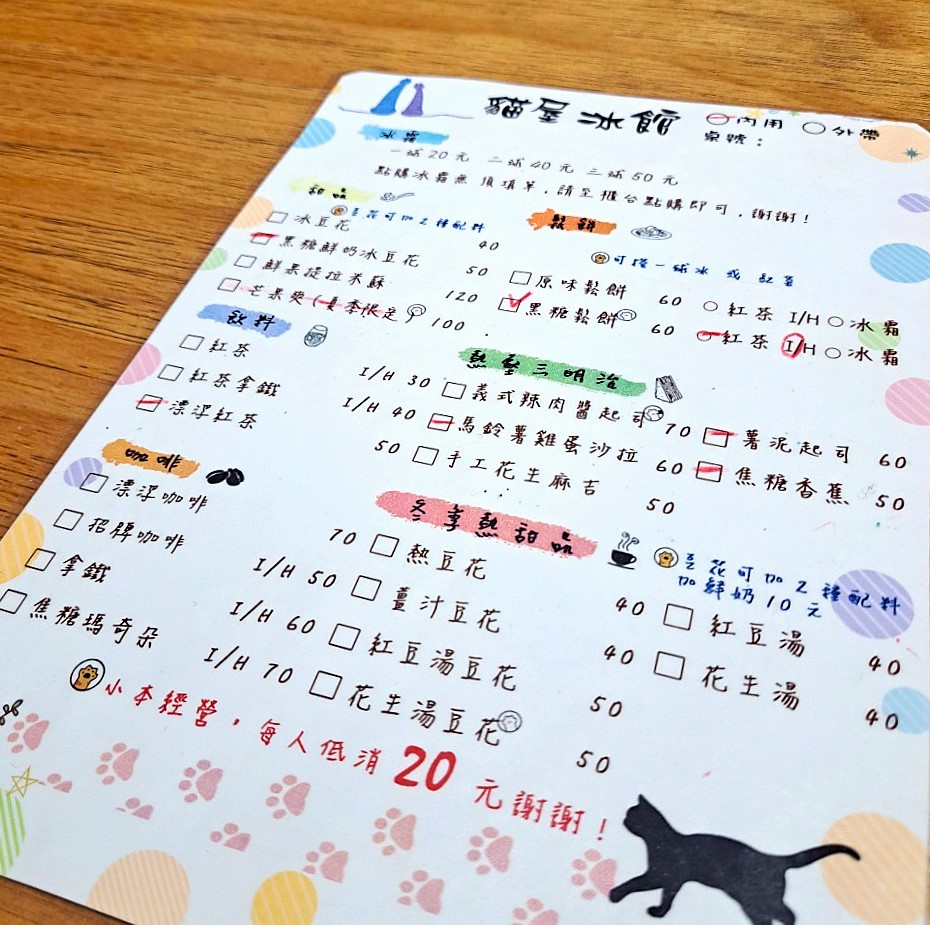 貓屋冰館
內用 外帶
桌號：
冰霜
一球20元 二球40元 三球50元
點購冰霜無須填單，請至櫃台點購即可，謝謝！
甜品
豆花可加2種配料
冰豆花 40
黑糖鮮奶冰豆花 50
鮮果提拉米酥 120
芒果爽(夏季限定) 100
鬆餅
可擇一球冰 或 紅茶
原味鬆餅 60 紅茶 I/H 冰霜
黑糖鬆餅 60 紅茶 I/H 冰霜
飲料
紅茶 I/H 30
紅茶拿鐵 I/H 40
漂浮紅茶 50
熱壓三明治
義式辣肉醬起司 70
馬鈴薯雞蛋沙拉 60
手工花生麻吉 50
薯泥起司 60
焦糖香蕉 50
咖啡
漂浮咖啡 70
招牌咖啡 I/H 50
拿鐵 I/H 60
焦糖瑪奇朵 I/H 70
冬季熱甜品
豆花可加2種配料
加鮮奶10元
熱豆花 40
薑汁豆花 40
紅豆湯豆花 50
花生湯豆花 50
紅豆湯 40
花生湯 40
小本經營，每人低消20元謝謝！